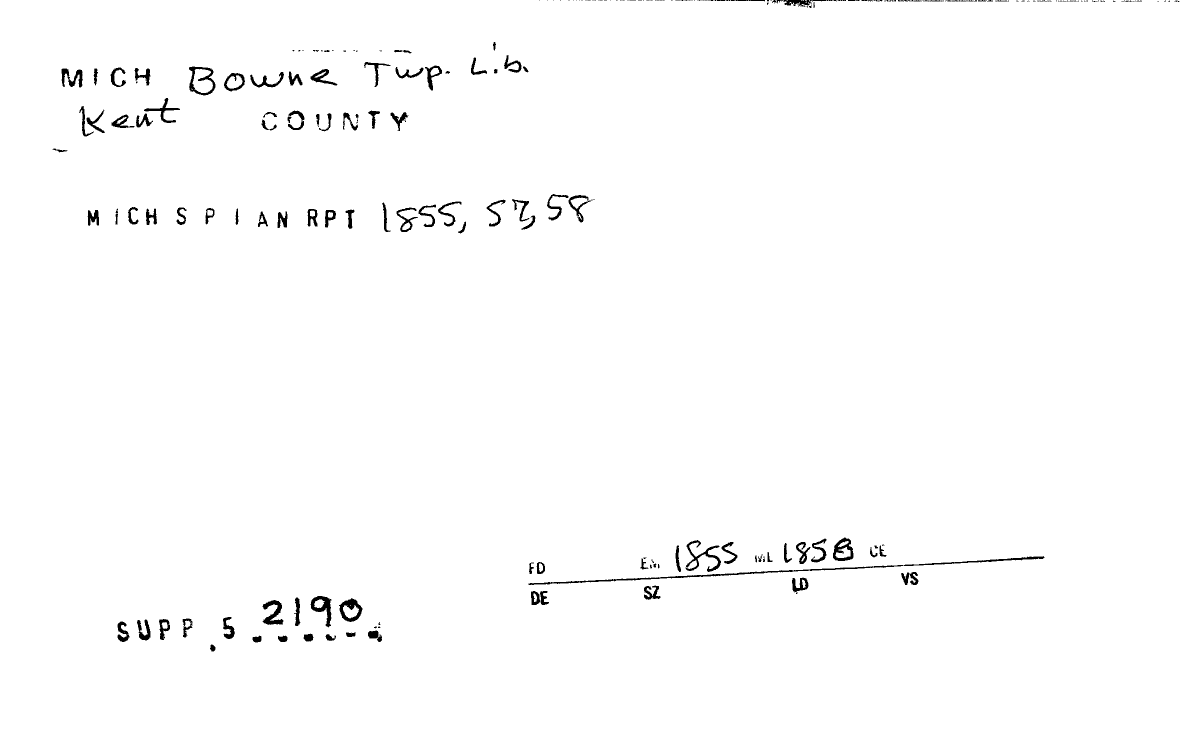 MICH Bowne Twp. Lib.
Kent COUNTY
MICH S P I AN RPT 1855, 57, 58
FD EM 1855 ML 1858 CE
DE SZ LD VS
SUPP. 5 2190